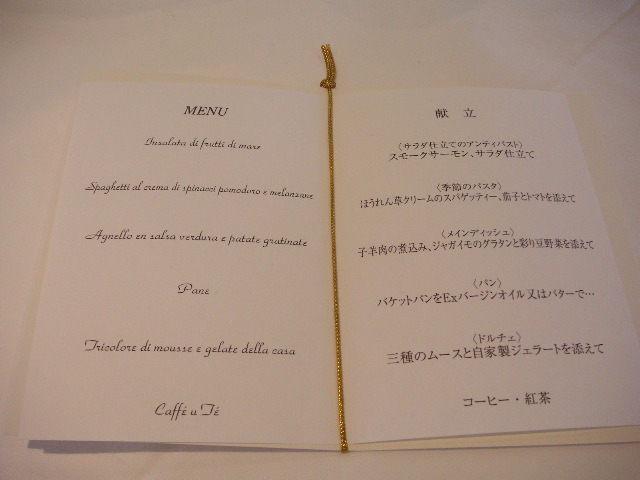 MENU
Insalata di frutti di mare
Spaghetti al crema di spinacci pomodoro e melanzane
Agnello en salsa verdura e patate gratinate
Pane
Tricolore di mousse e gelate della casa
Caffé u Té
献 立
〈サラダ仕立てのアンティパスト〉
スモークサーモン、サラダ仕立て
〈季節のパスタ〉
ほうれん草クリームのスパゲッティー、茄子とトマトを添えて
〈メインディッシュ〉
子羊肉の煮込み、ジャガイモのグラタンと彩り豆野菜を添えて
〈パン〉
バケットパンをExバージンオイル又はバターで…
〈ドルチェ〉
三種のムースと自家製ジェラートを添えて
コーヒー・紅茶